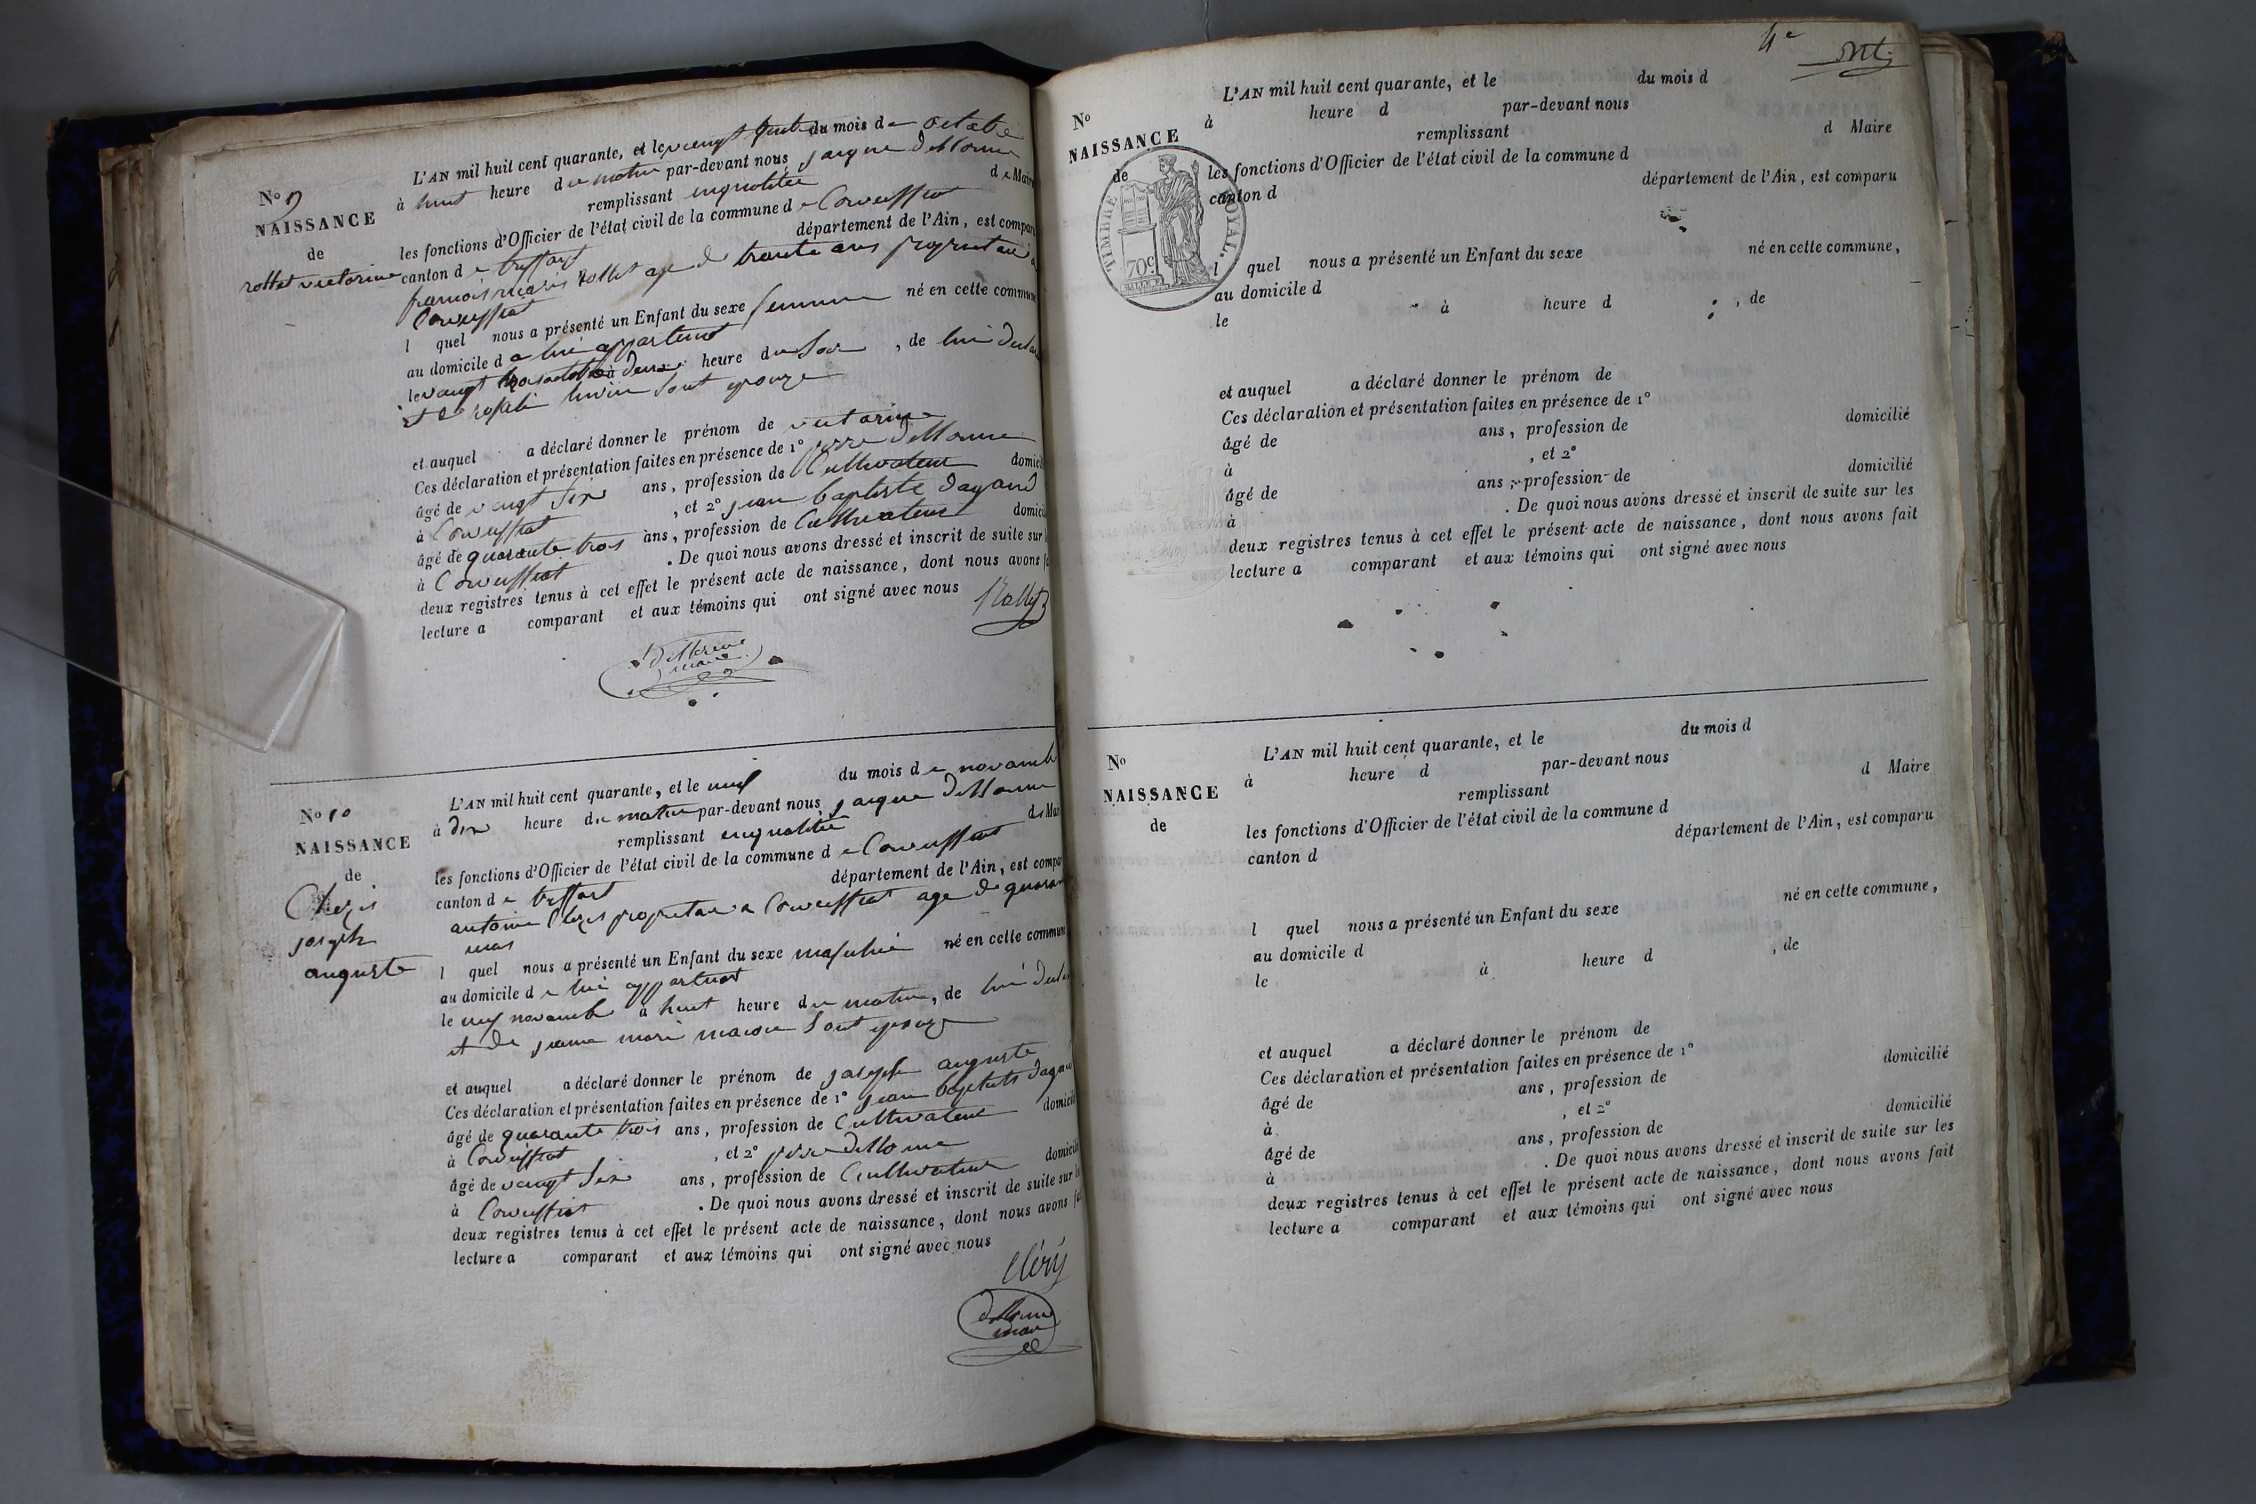 N° 9
NAISSANCE
de
rollet victorine
L'AN mil huit cent quarante, et le vingt quatre du mois de octobre
à huit heure du matin par-devant nous jacque dellorme
remplissant enqualitée de Maire
les fonctions d'Officier de l'état civil de la commune de Corveissiat
canton de treffort département de l'Ain, est comparu
francois marie rollet age de trante ans propriétaire a
Corveissiat
l quel nous a présenté un Enfant du sexe feminin né en cette commune
au domicile d a lui appartenant
le vingt trois octobre à deux heure du Soir, de lui declarant
et de rosalie Sont epouze
et auquel a déclaré donner le prénom de victorine
Ces déclaration et présentation faites en présence de 1° pierre dellorme
âgé de vingt Six ans, profession de Cultivateur domicilié
à Corveissiat, et 2° jean baptiste dagand
âgé de quarante trois ans, profession de Cultivateur domicilié
à Corveissiat. De quoi nous avons dressé et inscrit de suite sur
deux registres tenus à cet effet le présent acte de naissance, dont nous avons
lecture a comparant et aux témoins qui ont signé avec nous
Rollet
dellorme
maire
N° 10
NAISSANCE
de
Clezis
joseph
auguste
L'AN mil huit cent quarante, et le neuf du mois de novembre
à dix heure du matin par-devant nous jacque dellorme
remplissant enqualitée de Maire
les fonctions d'Officier de l'état civil de la commune de Corveissiat
canton de treffort département de l'Ain, est comparu
antoine Clezis propriétaire a Corveissiat age de quarante
l quel nous a présenté un Enfant du sexe masculin né en cette commune
au domicile de lui appartenant
le neuf novembre à huit heure du matin, de lui declarant
et de jeanne marie Sont epouze
et auquel a déclaré donner le prénom de joseph auguste
Ces déclaration et présentation faites en présence de 1° jean baptiste dagand
âgé de quarante trois ans, profession de Cultivateur domicilié
à Corveissiat, et 2° pierre dellorme
âgé de vingt Six ans, profession de Cultivateur domicilié
à Corveissiat. De quoi nous avons dressé et inscrit de suite sur
deux registres tenus à cet effet le présent acte de naissance, dont nous avons
lecture a comparant et aux témoins qui ont signé avec nous
Cléris
dellorme
maire
4e
N°
NAISSANCE
de
TIMBRE ROYAL.
70c
L'AN mil huit cent quarante, et le du mois d
à heure d par-devant nous
remplissant d Maire
les fonctions d'Officier de l'état civil de la commune d
canton d département de l'Ain, est comparu
l quel nous a présenté un Enfant du sexe né en cette commune,
au domicile d
le à heure d , de
et auquel a déclaré donner le prénom de
Ces déclaration et présentation faites en présence de 1°
âgé de ans, profession de domicilié
à , et 2°
âgé de ans, profession de domicilié
à . De quoi nous avons dressé et inscrit de suite sur les
deux registres tenus à cet effet le présent acte de naissance, dont nous avons fait
lecture a comparant et aux témoins qui ont signé avec nous
N°
NAISSANCE
de
L'AN mil huit cent quarante, et le du mois d
à heure d par-devant nous
remplissant d Maire
les fonctions d'Officier de l'état civil de la commune d
canton d département de l'Ain, est comparu
l quel nous a présenté un Enfant du sexe né en cette commune,
au domicile d
le à heure d , de
et auquel a déclaré donner le prénom de
Ces déclaration et présentation faites en présence de 1°
âgé de ans, profession de domicilié
à , et 2°
âgé de ans, profession de domicilié
à . De quoi nous avons dressé et inscrit de suite sur les
deux registres tenus à cet effet le présent acte de naissance, dont nous avons fait
lecture a comparant et aux témoins qui ont signé avec nous